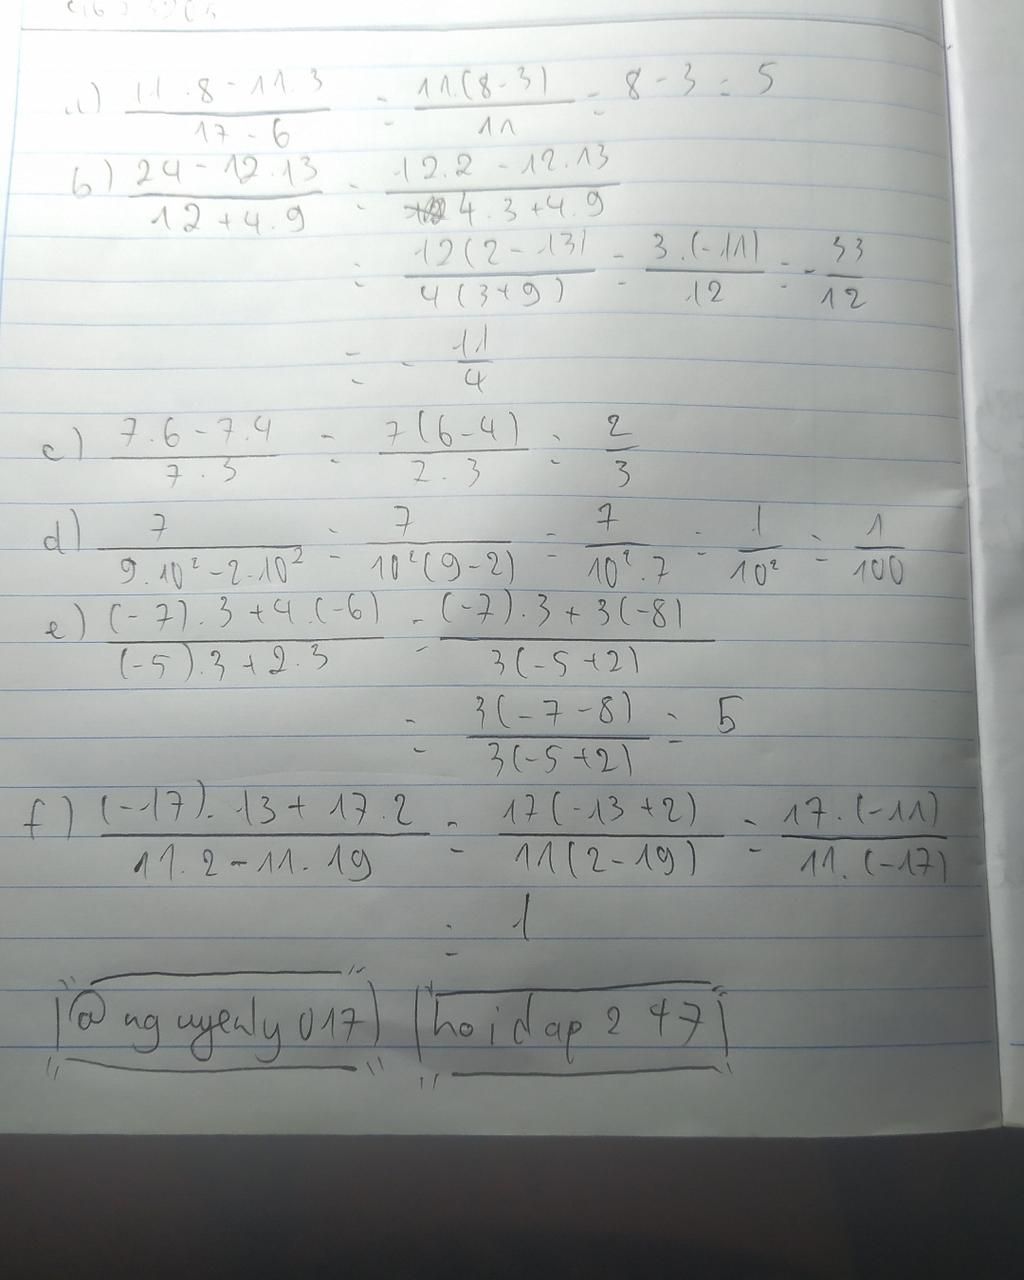 a) (11.8 - 11.3)/(17 - 6) = 11.(8-3)/11 = 8 - 3 = 5
b) (24 - 12.13)/(12 + 4.9) = (12.2 - 12.13)/(4.3 + 4.9)
= 12(2 - 13)/4(3+9) = 3.(-11)/12 = -33/12
= - 11/4
c) (7.6 - 7.4)/(7.3) = 7(6-4)/7.3 = 2/3
d) 7/(9.10² - 2.10²) = 7/10²(9-2) = 7/10².7 = 1/10² = 1/100
e) ((-7).3 + 4.(-6))/((-5).3 + 2.3) = ((-7).3 + 3(-8))/3(-5+2)
= 3(-7-8)/3(-5+2) = 5
f) ((-17).13 + 17.2)/(11.2 - 11.19) = 17(-13+2)/11(2-19) = 17.(-11)/11.(-17)
= 1
@nguyenly017 hoidap247